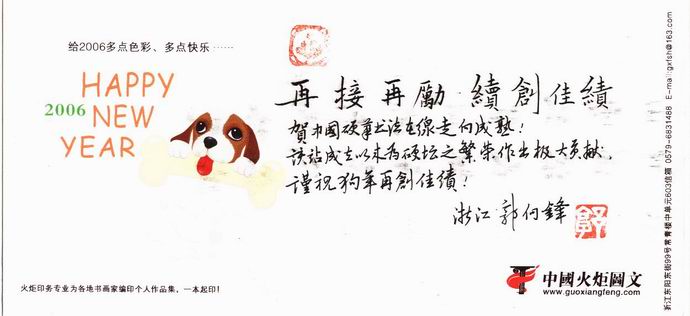 给2006多点色彩、多点快乐……
HAPPY
2006 NEW
YEAR
再接再勵 續創佳績
賀中國硬筆书法在線走向成熟!
该站成立以来為硬坛之繁荣作出极大贡献，
謹祝狗年再創佳績!
浙江 郭向鋒
中國火炬圖文
www.guoxiangfeng.com
火炬印务专业为各地书画家编印个人作品集，一本起印!
浙江东阳东街99号常青楼中单元603信箱 0579-6831488 E-mail:gxfsh@163.com